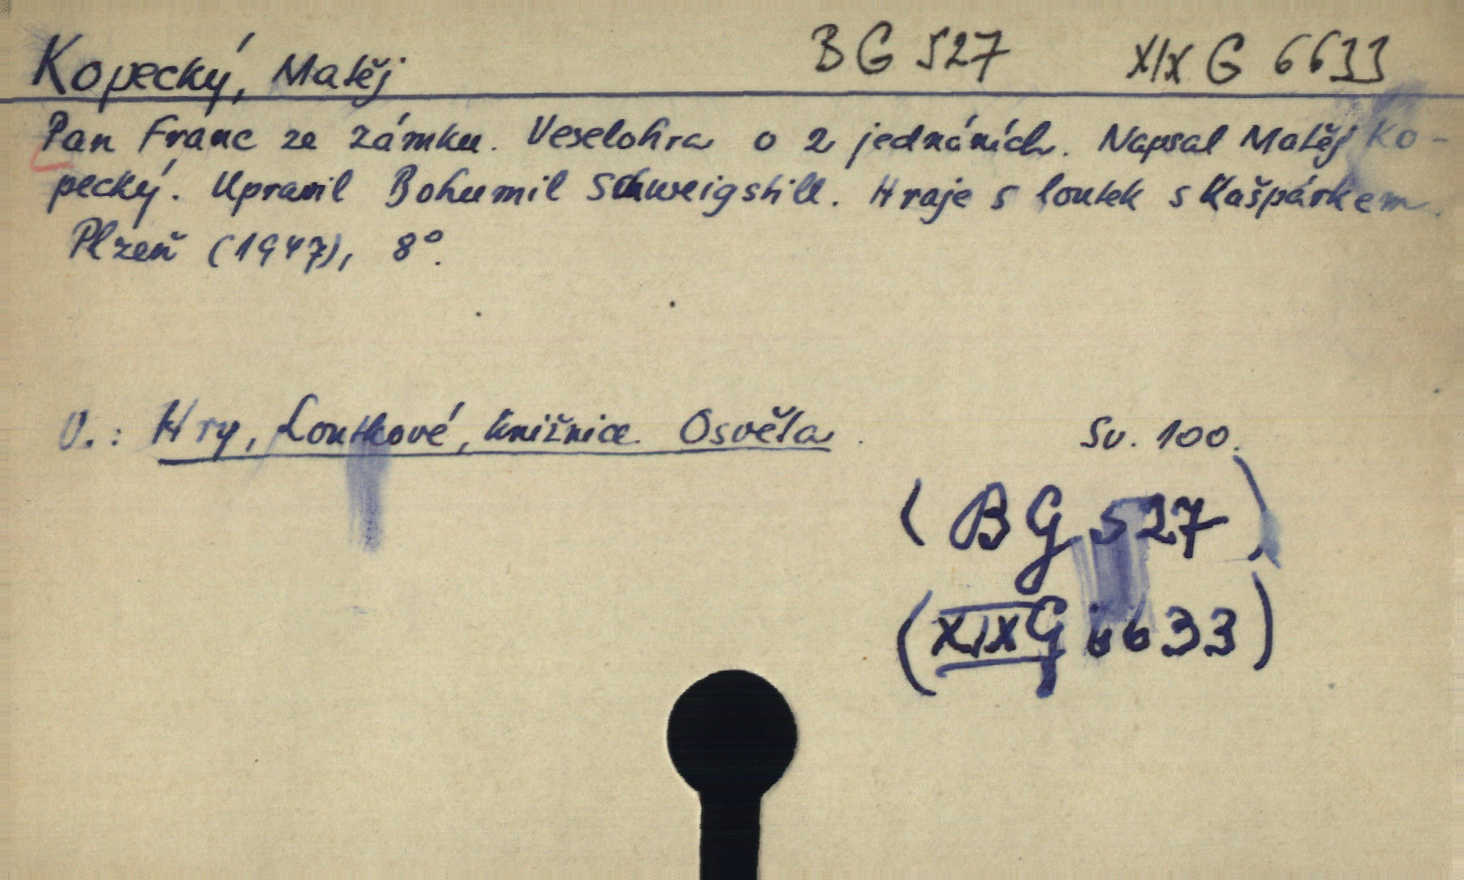 Kopecký, Matěj BG 527 XIX G 6633
Pan Franc ze zámku. Veselohra o 2 jednáních. Napsal Matěj Ko-
pecký. Upravil Bohumil Schweigstill. Hraje 5 loutek s Kašpárkem.
Plzeň (1947), 8°.
V.: Hry, Loutkové, knižnice Osvěta. Sv. 100.
(BG 527)
(XIX G 6633)